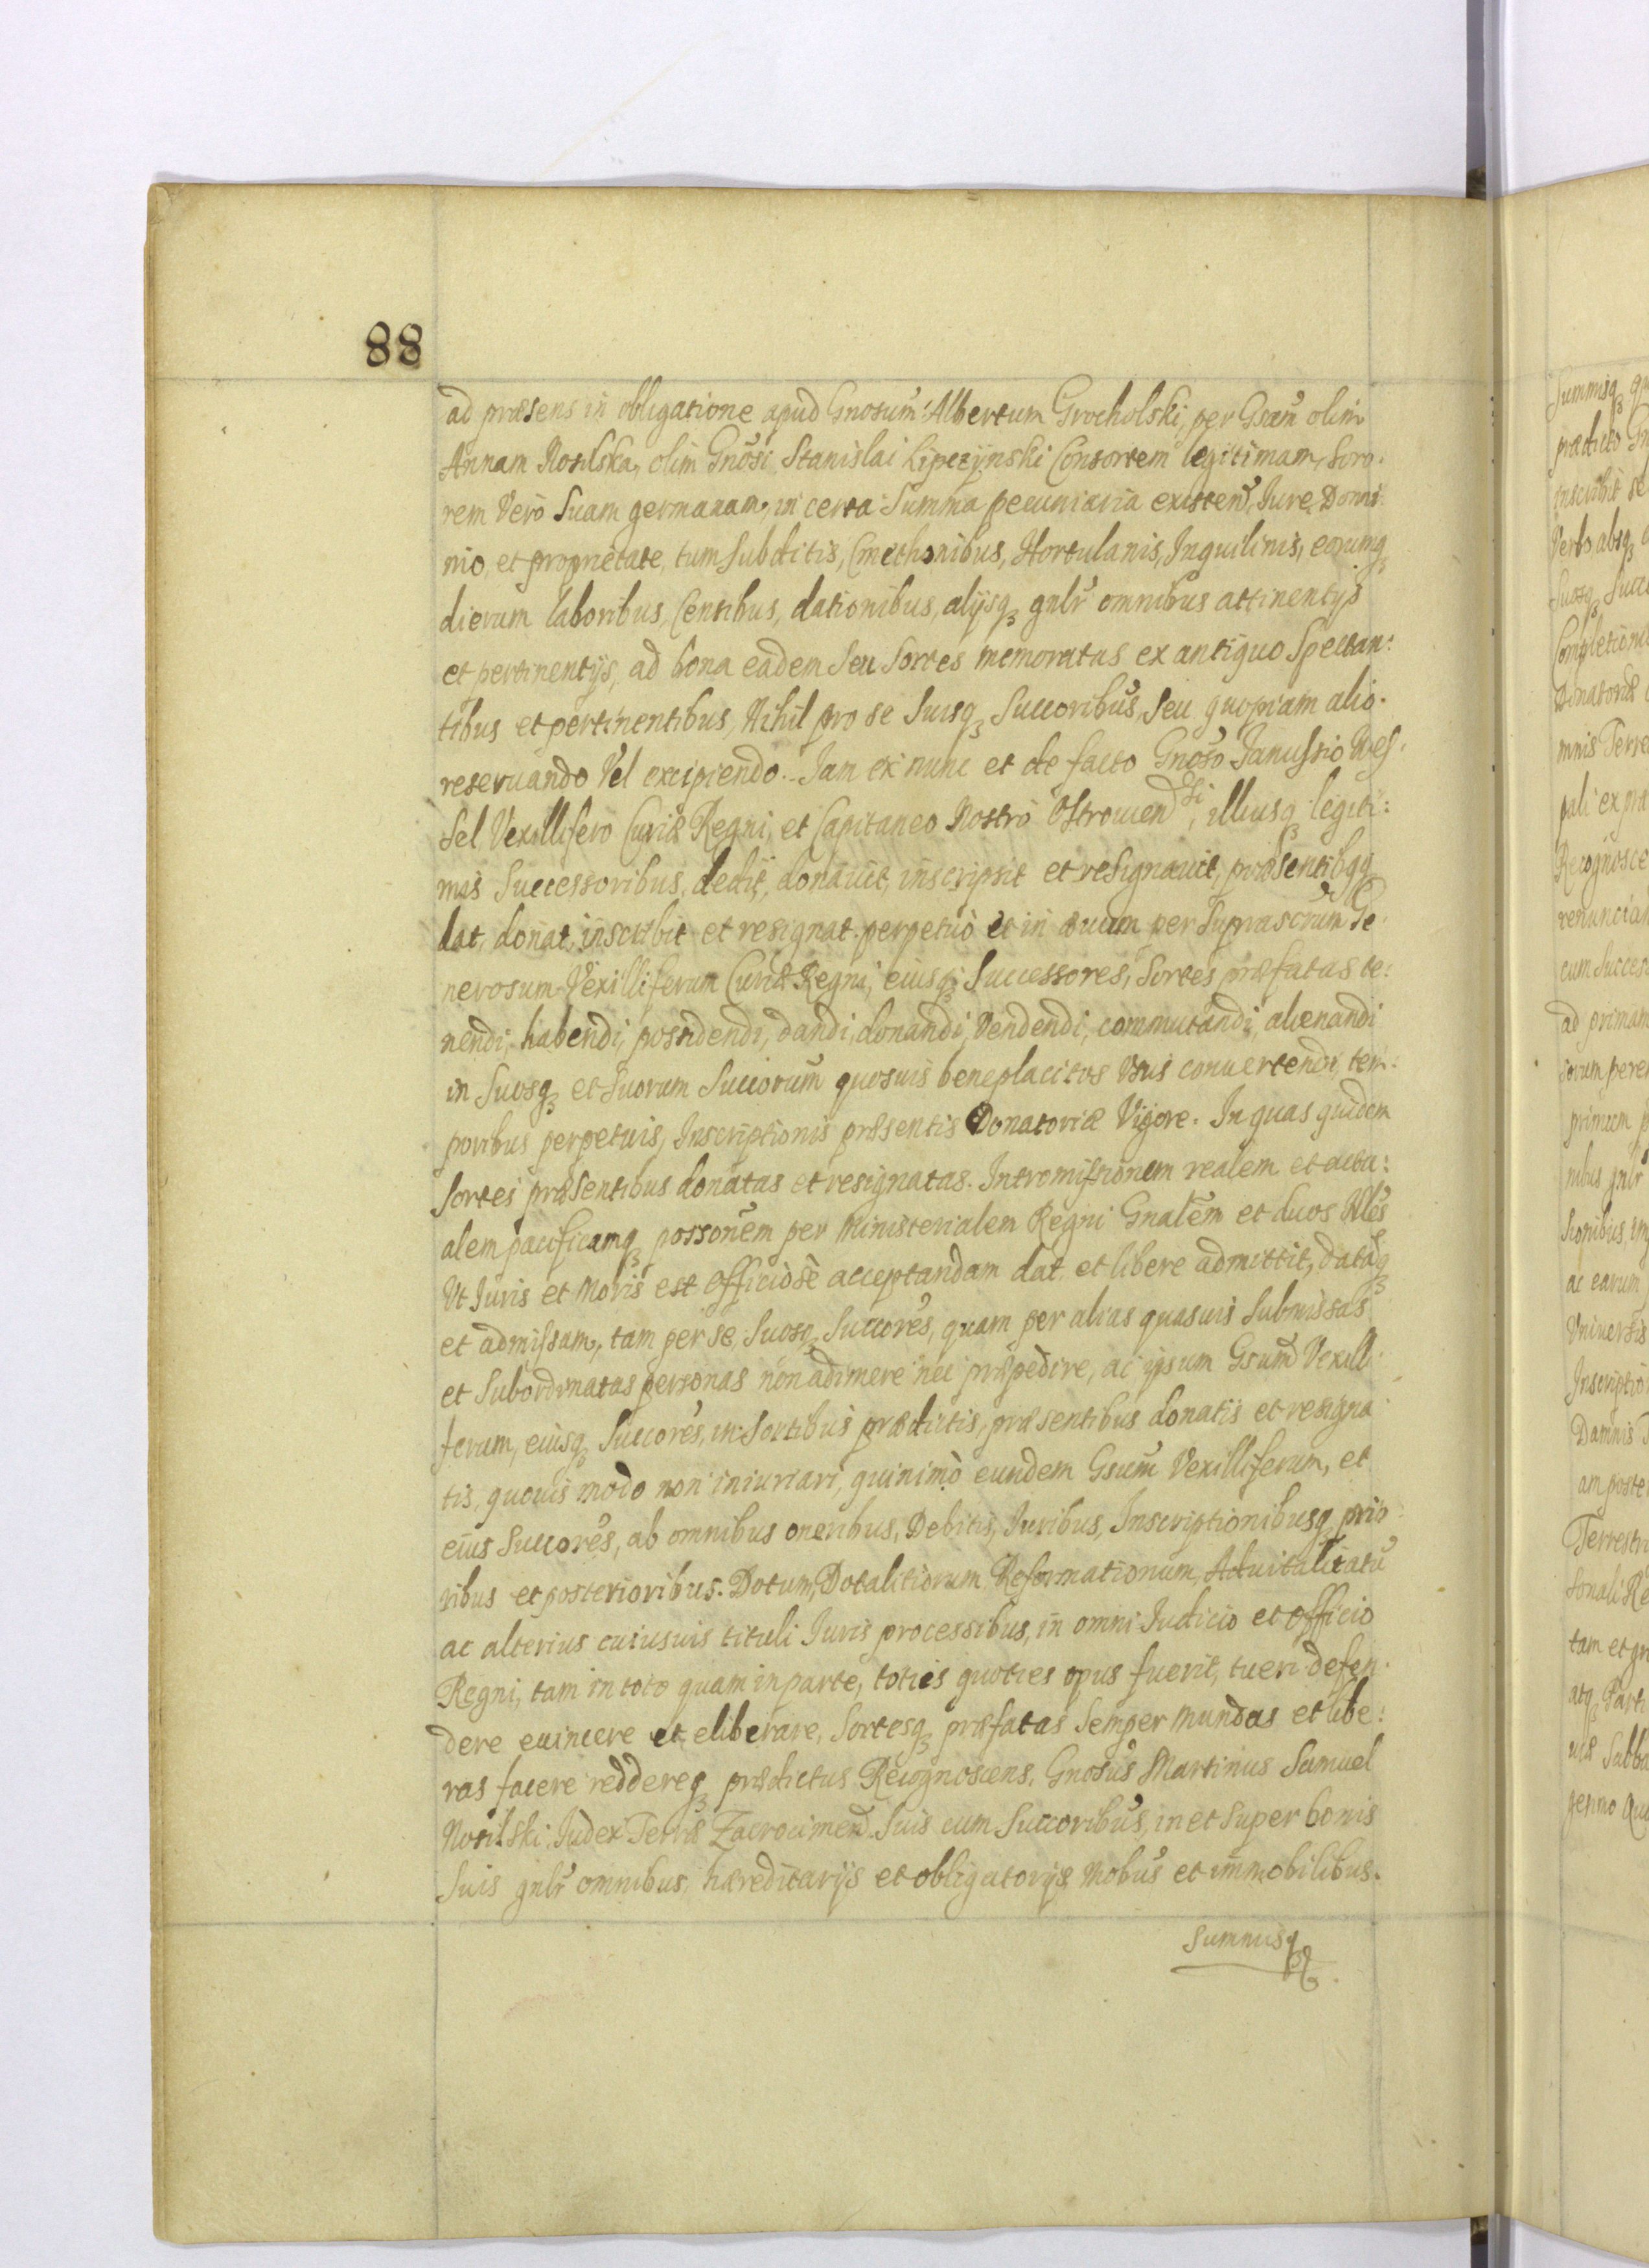 88
ad præsens in obligatione apud Gnosum Albertum Grocholski, per Gsam olim
Annam Nosilska, olim Gnosi Stanislai Lipczynski Consortem legitimam, Soro.
rem Vero Suam germanam, in certa Summa pecuniaria existen, Iure Domi
nio, et proprietate, tum Subditis, Cmethonibus, Hortulanis, Inquilinis, eorumq
dierum laboribus, Censibus, dationibus, alijsq gnlr omnibus attinentijs
et pertinentijs, ad bona eadem Seu Sortes memoratas ex antiquo Spectan:
tibus et pertinentibus, Nihil pro se Suisq Succoribus, Seu quopiam alio.
reseruando Vel excipiendo. Iam ex nunc et de facto Gnoso Ianussio Wes.
sel Vexillifero Curiæ Regni, et Capitaneo Nostro Ostrouien si, illiusq legiti:
mis Successoribus, dedit, donauit, inscripsit et resignauit, præsentibqq
dat, donat, inscribit et resignat perpetuò et in æuum per Suprascrum Ge.
nerosum Vexilliferum Curiæ Regni, eiusq Successores, Sortes præfatas te:
nendi, habendi, possidendi, dandi, donandi, Vendendi, commutandi, alienandi
in Suosq et Suorum Succorum quosuis beneplacitos Vsus conuertendi, tem.
poribus perpetuis, Inscriptionis præsentis Donatoriæ Vigore. In quas quidem
Sortes præsentibus donatas et resignatas. Intromissionem realem et actu:
alem pacificamq possonem per Ministerialem Regni Gnalem et duos Nles
Vt Iuris et Moris est officiosè acceptandam dat et libere admittit, datāq
et admissam, tam per se, Suosq Succores, quam per alias quasuis Submissas
et Subordinatas personas non adimere nec præpedire, ac ipsum Gsum Vexilli
ferum, eiusq Succores, in Sortibus prædictis, præsentibus donatis et resigna
tis, quouis modo non iniuriari, quinimò eundem Gsum Vexilliferum, et
eius Succores, ab omnibus oneribus, Debitis, Iuribus, Inscriptionibusq prio
ribus et posterioribus. Dotum, Dotalitiorum, Reformationum, Aduitalitatū
ac alterius cuiusuis tituli Iuris processibus, in omni Iudicio et officio
Regni, tam in toto quam in parte, toties quoties opus fuerit, tueri defen.
dere euincere et eliberare, Sortesq præfatas Semper mundas et libe:
ras facere reddereq prædictus Recognoscens, Gnosus Martinus Samuel
Nosilski Iudex Terræ Zacrocimen. Suis cum Succoribus, in et Super bonis
Suis gnlr omnibus, hæreditarijs et obligatorijs Mobus et immobilibus.
Summisq
Summisq
prædicto
inscribit se
Verbo absq
Suosq Succ
Completioni
Donatoriæ
mnis Terre
pali ex
Recognosce
renuncian
cum Succes
ad primam
primum
nibus gnlr
ac earum
Vniuersis
Inscriptio
Damnis
am poste
Terrestri
sonali Re
tam et
atq Parti